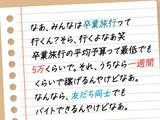 なあ、みんなは卒業旅行って
行くん?そら、行くよなあ笑
卒業旅行の平均予算って最低でも
5万くらいで。それ、うちなら一週間
くらいで稼げるんやけどなあ。
なんなら、友だち同士でも
バイトできるんやけどなあ。